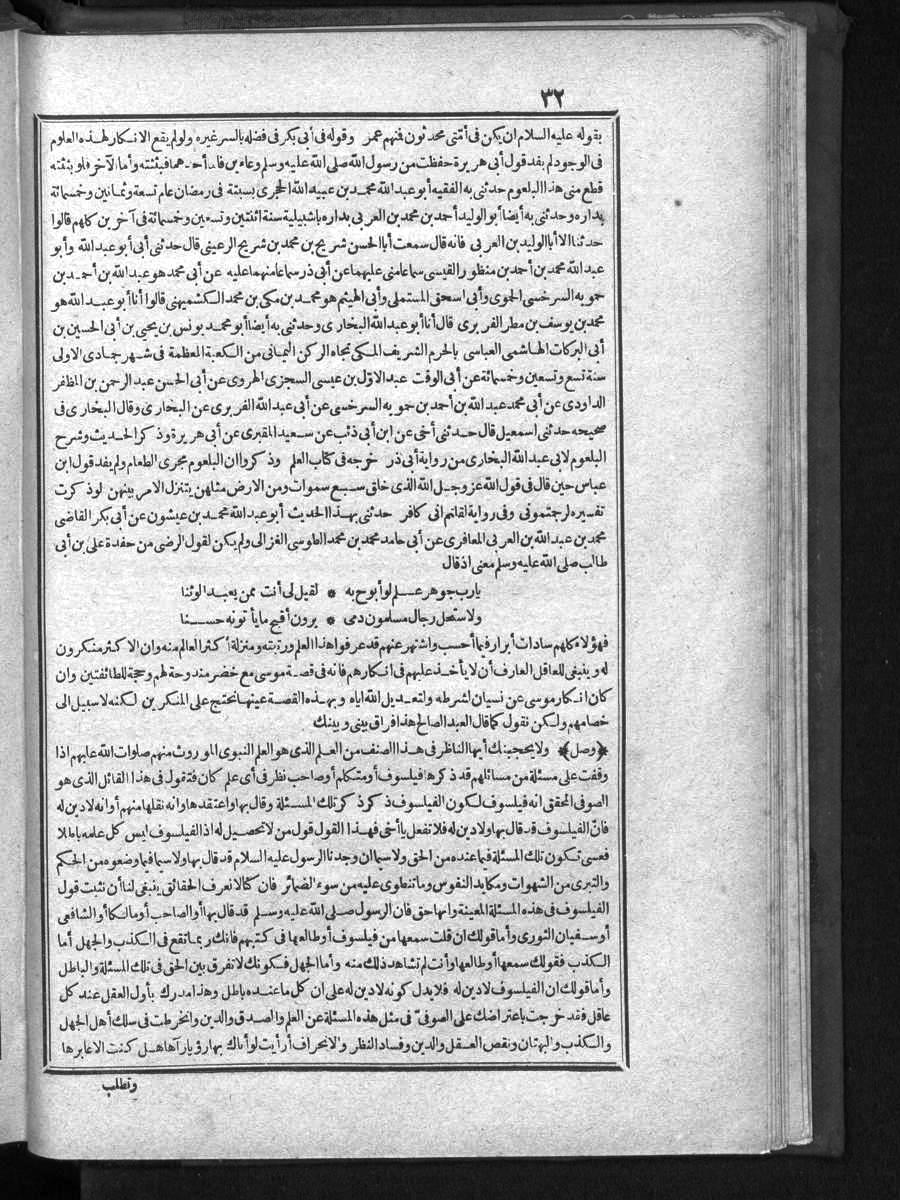 ٣٢
بقوله عليه السلام ان يكن فى أمتى محدثون فنهم عمر وقوله فى أبى بكر فى فضله بالسر غيره ولو لم يقع الانكار لهذه العلوم
فى الوجود لم يفد قول أبى هريرة حفظت من رسول الله صلى الله عليه وسلم وعاءين فاما أحدهما فبثثته وأما الآخر فلو بثثته
قطع منى هذا البلعوم حدثنى به الفقيه أبو عبد الله محمد بن عبيد الله الحجرى بسبتة فى رمضان عام تسعة وثمانين وخمسمائة
بداره وحدثنى به أيضا أبو الوليد أحمد بن محمد بن العربى بداره باشبيلية سنة اثنتين وتسعين وخمسمائة فى آخرين كلهم قالوا
حدثنا الا أبا الوليد بن العربى فانه قال سمعت أبا الحسن شريح بن محمد بن شريح الرعينى قال حدثنى أبى أبو عبد الله وأبو
عبد الله محمد بن أحمد بن منظور القيسى سماعا منى عليهما عن أبى ذر سماعا منهما عليه عن أبى محمد هو عبد الله بن أحمد بن
حمويه السرخسى الحموى وأبى اسحق المستملى وأبى الهيثم هو محمد بن مكى بن محمد الكشميهنى قالوا أنا أبو عبد الله هو
محمد بن يوسف بن مطر الفربرى قال أنا أبو عبد الله البخارى وحدثنى به أيضا أبو محمد يونس بن يحيى بن أبى الحسين بن
أبى البركات الهاشمى العباسى بالحرم الشريف المكى تجاه الركن اليمانى من الكعبة المعظمة فى شهر جمادى الاولى
سنة تسع وتسعين وخمسمائة عن أبى الوقت عبد الاول بن عيسى السجزى الهروى عن أبى الحسن عبد الرحمن بن المظفر
الداودى عن أبى محمد عبد الله بن أحمد بن حمويه السرخسى عن أبى عبد الله الفربرى عن البخارى وقال البخارى فى
صحيحه حدثنى اسمعيل قال حدثنى أخى عن ابن أبى ذئب عن سعيد المقبرى عن أبى هريرة وذكر الحديث وشرح
البلعوم لابى عبد الله البخارى من رواية أبى ذر خرجه فى كتاب العلم وذكروا ان البلعوم مجرى الطعام ولم يفد قول ابن
عباس حين قال فى قول الله عز وجل الله الذى خلق سبع سموات ومن الارض مثلهن يتنزل الامر بينهن لو ذكرت
تفسيره لرجمتمونى وفى رواية لقلتم انى كافر حدثنى بهذا الحديث أبو عبد الله محمد بن عيشون عن أبى بكر القاضى
محمد بن عبد الله بن العربى المعافرى عن أبى حامد محمد بن محمد الطوسى الغزالى ولم يكن لقول الرضى من حفدة على بن أبى
طالب صلى الله عليه وسلم معنى اذ قال
يارب جوهر علم لو أبوح به * لقيل لى أنت ممن يعبد الوثنا
ولاستحل رجال مسلمون دمى * يرون أقبح ما يأتونه حسنا
فهؤلاء كلهم سادات أبرار فيما أحسب واشتهر عنهم قد عرفوا هذا العلم ورتبته ومنزلة أكثر العالم منه وان الاكثر منكرون
له وينبغى للعاقل العارف أن لا يأخذ عليهم فى انكارهم فانه فى قصة موسى مع خضر مندوحة لهم وحجة للطائفتين وان
كان انكار موسى عن نسيان لشرطه ولتعديل الله اياه وبهذه القصة عينها نحتج على المنكرين لكنه لاسبيل الى
خصامهم ولكن نقول كما قال العبد الصالح هذا فراق بينى وبينك
﴿وصل﴾ ولا يحجبنك أيها الناظر فى هذا الصنف من العلم الذى هو العلم النبوى الموروث منهم صلوات الله عليهم اذا
وقفت على مسئلة من مسائلهم قد ذكرها فيلسوف أو متكلم أو صاحب نظر فى أى علم كان فتقول فى هذا القائل الذى هو
الصوفى المحقق انه فيلسوف لكون الفيلسوف ذكر تلك المسئلة وقال بها واعتقدها وانه نقلها منهم أو انه لادين له
فان الفيلسوف قد قال بها ولا دين له فلا تفعل يا أخى فهذا القول قول من لا تحصيل له اذ الفيلسوف ليس كل علمه باطلا
فعسى تكون تلك المسئلة فيما عنده من الحق ولا سيما ان وجدنا الرسول عليه السلام قد قال بها ولا سيما فيما وضعوه من الحكم
والتبرى من الشهوات ومكايد النفوس وما تنطوى عليه من سوء الضمائر فان كنا لا نعرف الحقائق ينبغى لنا أن نثبت قول
الفيلسوف فى هذه المسئلة المعينة وانها حق فان الرسول صلى الله عليه وسلم قد قال بها أو الصاحب أو مالكا أو الشافعى
أو سفيان الثورى وأما قولك ان قلت سمعها من فيلسوف أو طالعها فى كتبهم فانك ربما تقع فى الكذب والجهل أما
الكذب فقولك سمعها أو طالعها وأنت لم تشاهد ذلك منه وأما الجهل فكونك لا تفرق بين الحق فى تلك المسئلة والباطل
وأما قولك ان الفيلسوف لادين له فلا يدل كونه لادين له على ان كل ما عنده باطل وهذا مدرك بأول العقل عند كل
عاقل فقد خرجت باعتراضك على الصوفى فى مثل هذه المسئلة عن العلم والصدق والدين وانخرطت فى سلك أهل الجهل
والكذب والبهتان ونقص العقل والدين وفساد النظر والانحراف أرأيت لو أتاك بها رؤيا رآها هل كنت الا عابرها
وتطلب